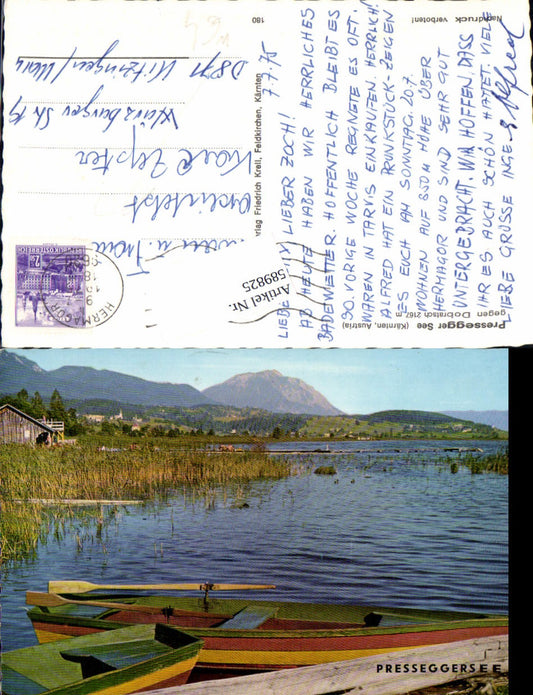 Pressegger See (Kärnten, Austria)
gegen Dobratsch 2167 m
180
Nachdruck verboten!
Verlag Friedrich Krell, Feldkirchen, Kärnten
7.7.75
LIEBE LIEBER ZOCH!
AB HEUTE HABEN WIR HERRLICHES
BADEWETTER. HOFFENTLICH BLEIBT ES
SO. VORIGE WOCHE REGNETE ES OFT.
WAREN IN TARVIS EINKAUFEN. HERRLICH!
ALFRED HAT EIN PRUNKSTÜCK - ZEIGEN
ES EUCH AM SONNTAG. 20.7.
WOHNEN AUF 850M HÖHE ÜBER
HERMAGOR UND SIND SEHR GUT
UNTERGEBRACHT. WIR HOFFEN, DASS
IHR ES AUCH SCHÖN HATTET. VIELE
LIEBE GRÜSSE INGE
& Alfred
Frau
Karl
D 8711 Kitzingen/Main
REPUBLIK ÖSTERREICH
HERMAGOR
Artikel Nr.
589825
PRESSEGGERSEE